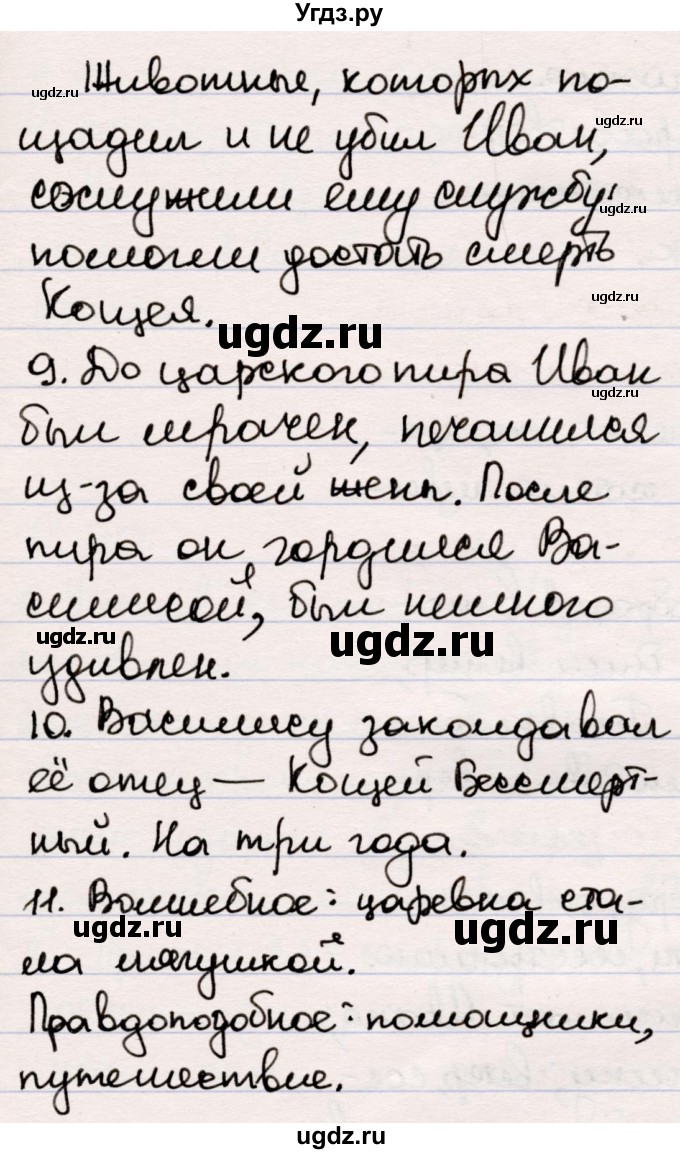 Угдз.ру
Животные, которых по-
щадил и не убил Иван,
сослужили ему службу:
помогли достать смерть
Кощея.
9. До царского пира Иван
был мрачен, печалился
из-за своей жены. После
пира он гордился Ва-
силисой, был немного
удивлен.
10. Василису заколдавал
её отец — Кощей Бессмерт-
ный. На три года.
11. Волшебное: царевна ста-
ла лягушкой.
Правдоподобное: помощники,
путешествие.
ugdz.ru
ugdz.ru
ugdz.ru
ugdz.ru
ugdz.ru
ugdz.ru
ugdz.ru
ugdz.ru
ugdz.ru
ugdz.ru
ugdz.ru
ugdz.ru